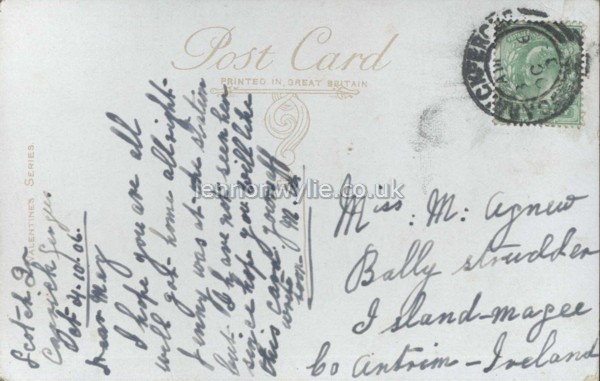 Post Card
PRINTED IN GREAT BRITAIN
VALENTINES SERIES.
Scotch Qr
Carrickfergus
Oct 4.10.06.
Dear May
I hope you are all
well got home allright-
Jenny was at the station
but I have not seen her
since hope you will like
this card yourself
write soon M. A.
Miss. M. Agnew
Bally strudder
Island-magee
Co Antrim - Ireland
lennonwylie.co.uk